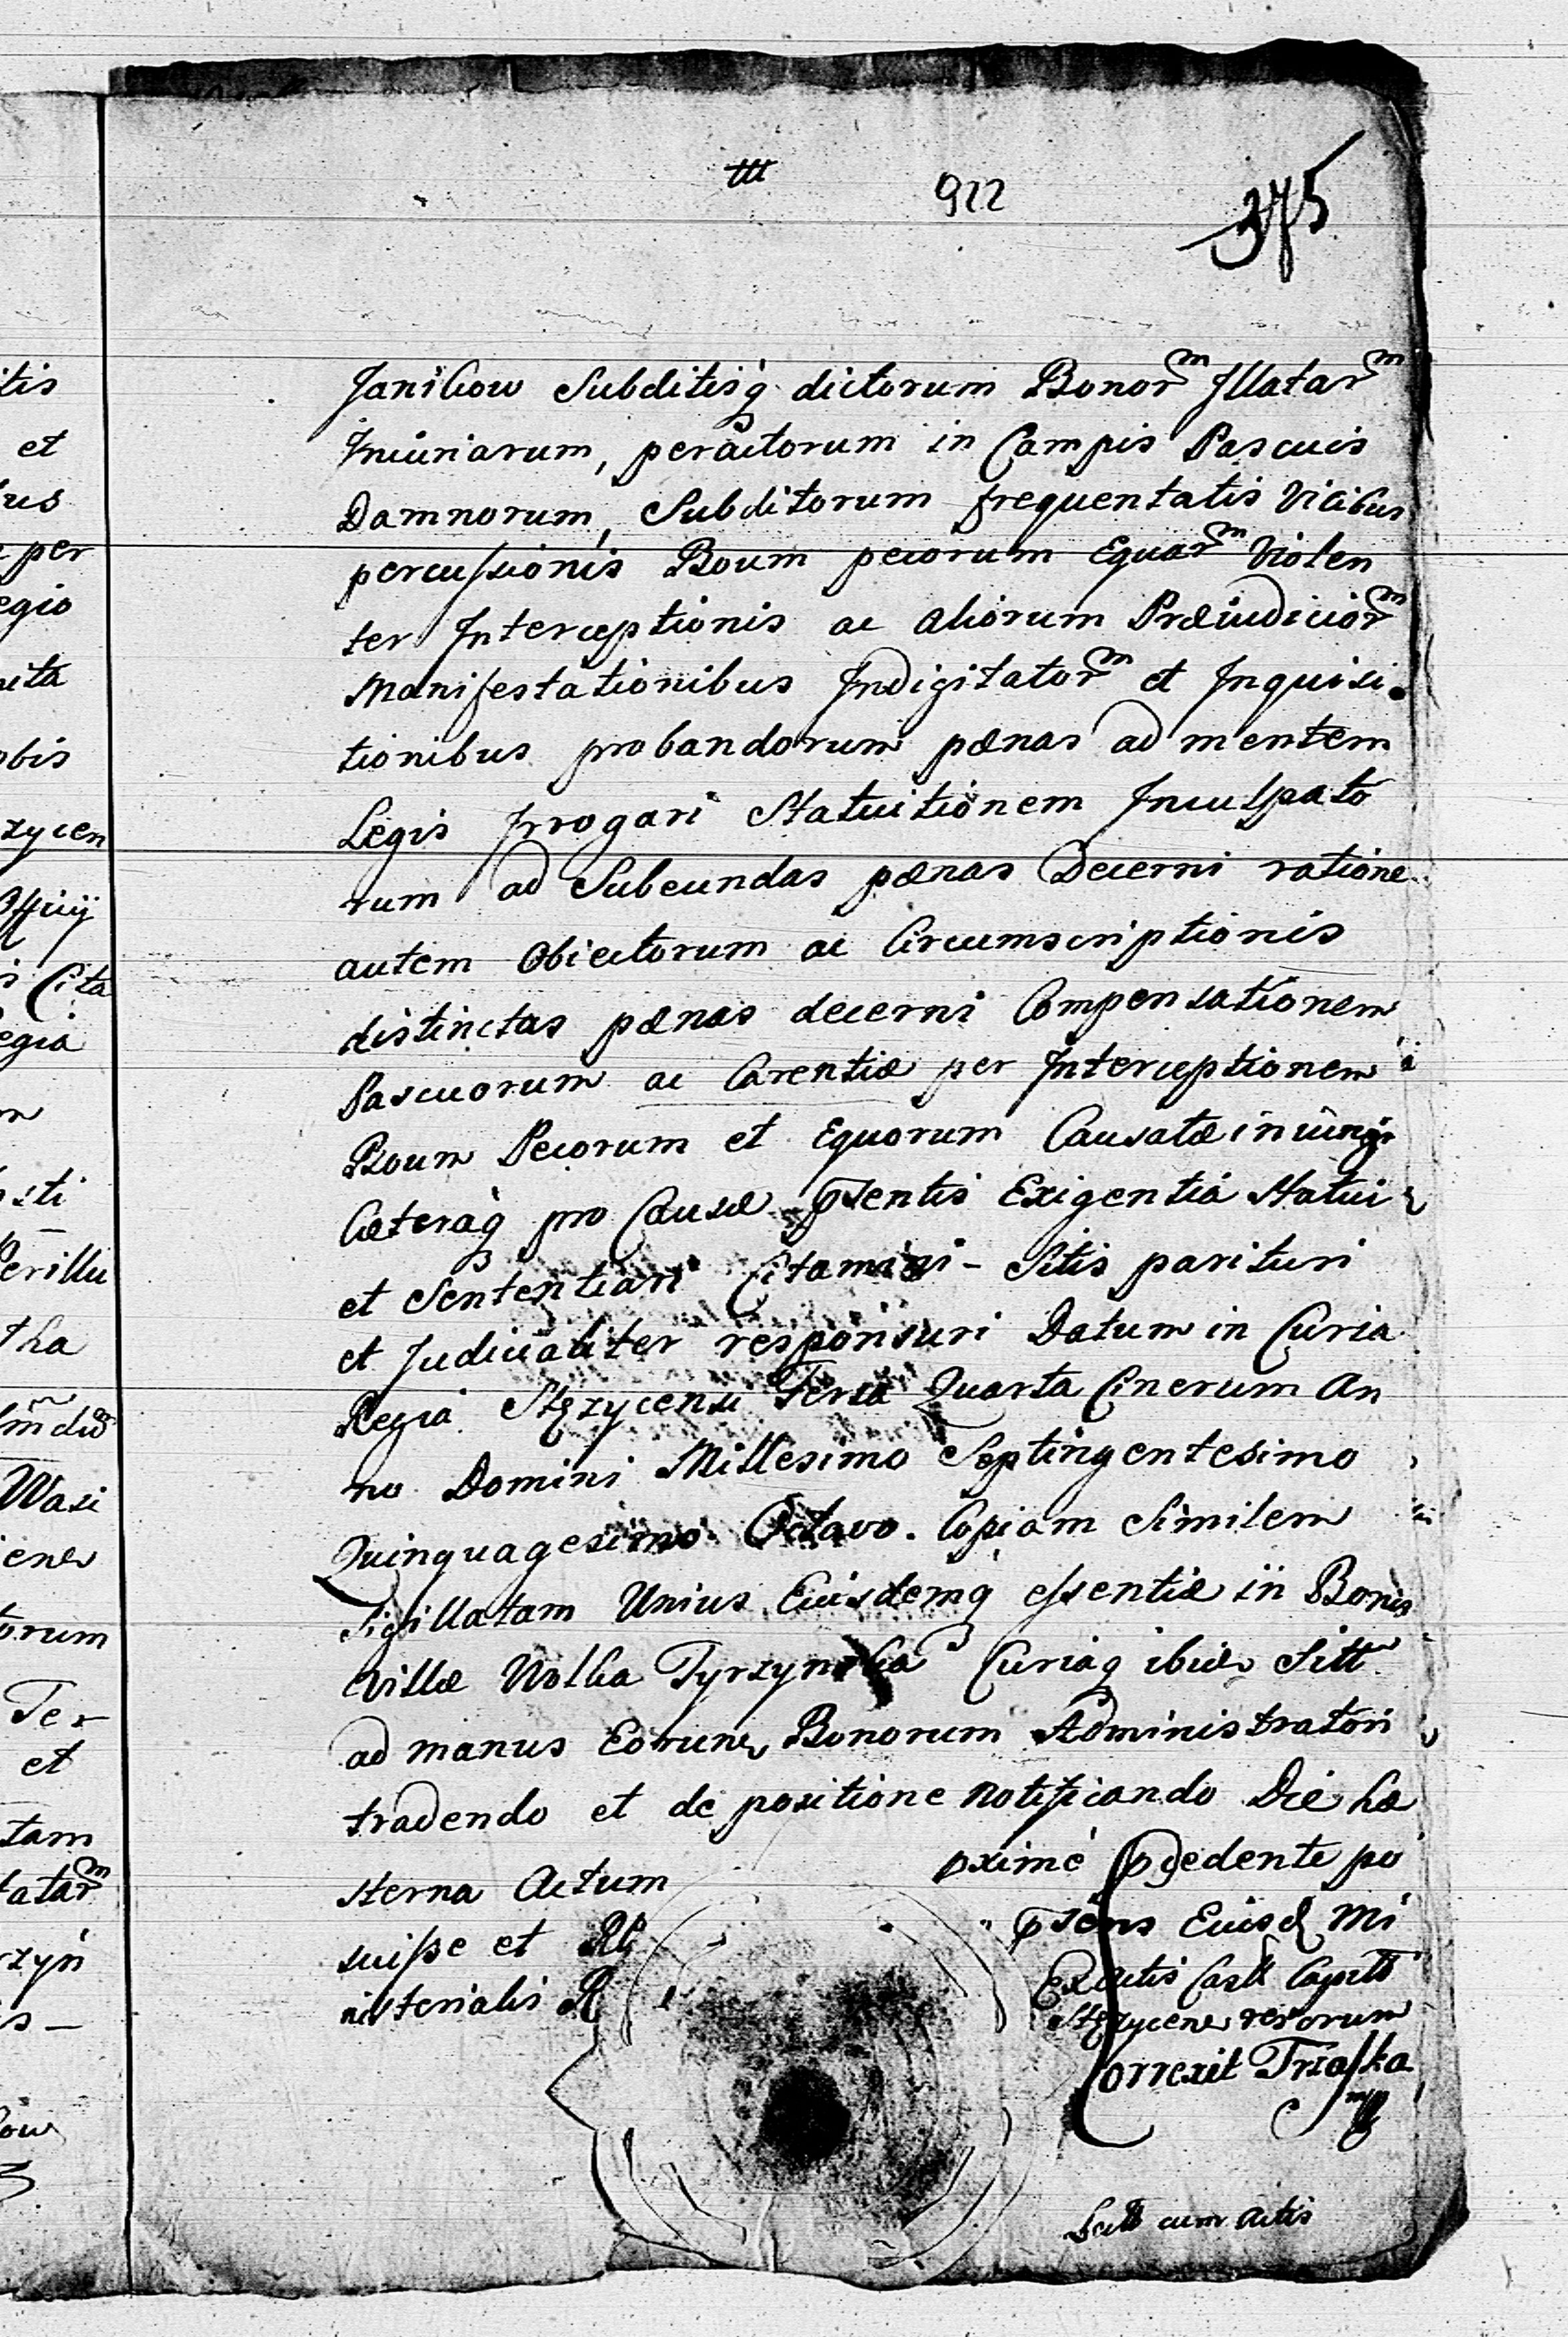 922
375
Janikow Subditisq̃ dictorum Bonorm̃ Illatarm̃
Iniuriarum, peractorum in Campis Pascuis
Damnorum, Subditorum frequentatis Vicibus
percussionis Boum pecorum Equarm̃ Violen
ter Interceptionis ac aliorum Præiudiciorm̃
Manifestationibus Indigitatorm̃ et Inquisi
tionibus probandorum pænas ad mentem
Legis Irrogari Statuitionem Inculpato
rum ad Subeundas pænas Decerni ratione
autem Obiectorum ac Circumscriptionis
distinctas pænas decerni Compensationem
Pascuorum ac Carentiæ per Interceptionem
Boum Pecorum et Equorum Causatæ iniungi
Cæteraq̃ pro Causæ p̃sentis Exigentia Statui
et Sententiari Citamini - Sitis parituri
et Judicialiter responsuri Datum in Curia
Regia Stęzycensi Feria Quarta Cinerum An
no Domini Millesimo Septingentesimo
Quinquagesimo Octavo. Copiam Similem
Sigillatam Unius Eiusdemq̃ essentiæ in Bonis
Villæ Wolka Tyrzynska Curiaq̃ ibid. Sitt.
ad manus Eorum Bonorum Administratori
tradendo et de positione notificando Die he
sterna Actum pximè p̃cedente po
suisse et p̃sens Eiusd Mi
nisterialis
Ex Actis Castr Capit
Stęzycen. rexorum
Correxit Trzaska
mp
Lect cum Actis
itis
et
us
per
egio
nita
obis
zycen
Officij
Cita
egia
m
sti
Perillu
tha
Wasi
ienen
torum
Ter
et
tam
tatarm̃
rzyn
is -
kow